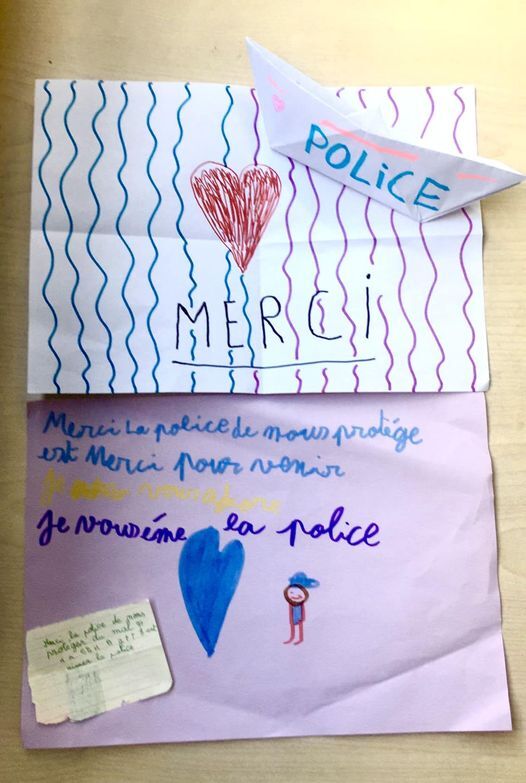 POLiCE
MERCi
Merci la police de nous protége
est Merci pour venir
Je vous adore
Je vouséme la police
Merci la police de nous
protéger du mal
aimer la police